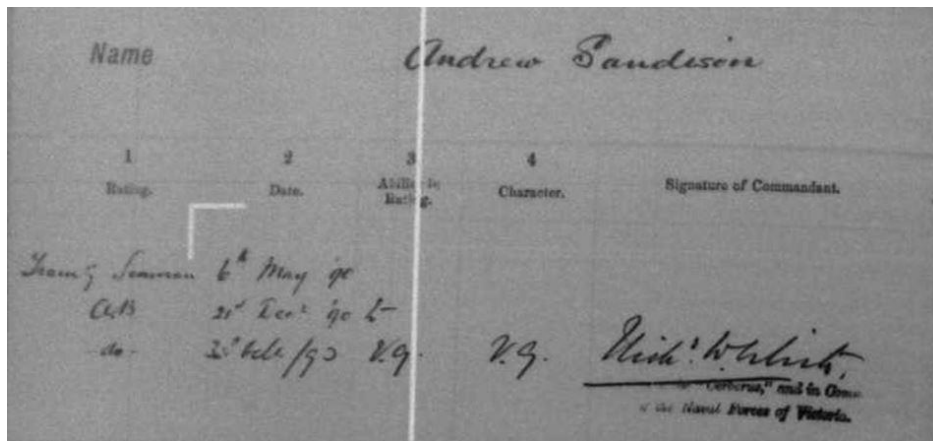 Name Andrew Sandison
1 2 3 4
Rating. Date. Ability in Rating. Character. Signature of Commandant.
Train'g Seaman 6th May '90
A.B. 21st Decr '90 to
do V.G. V.G.
"Cerberus," and in
of the Naval Forces of Victoria.